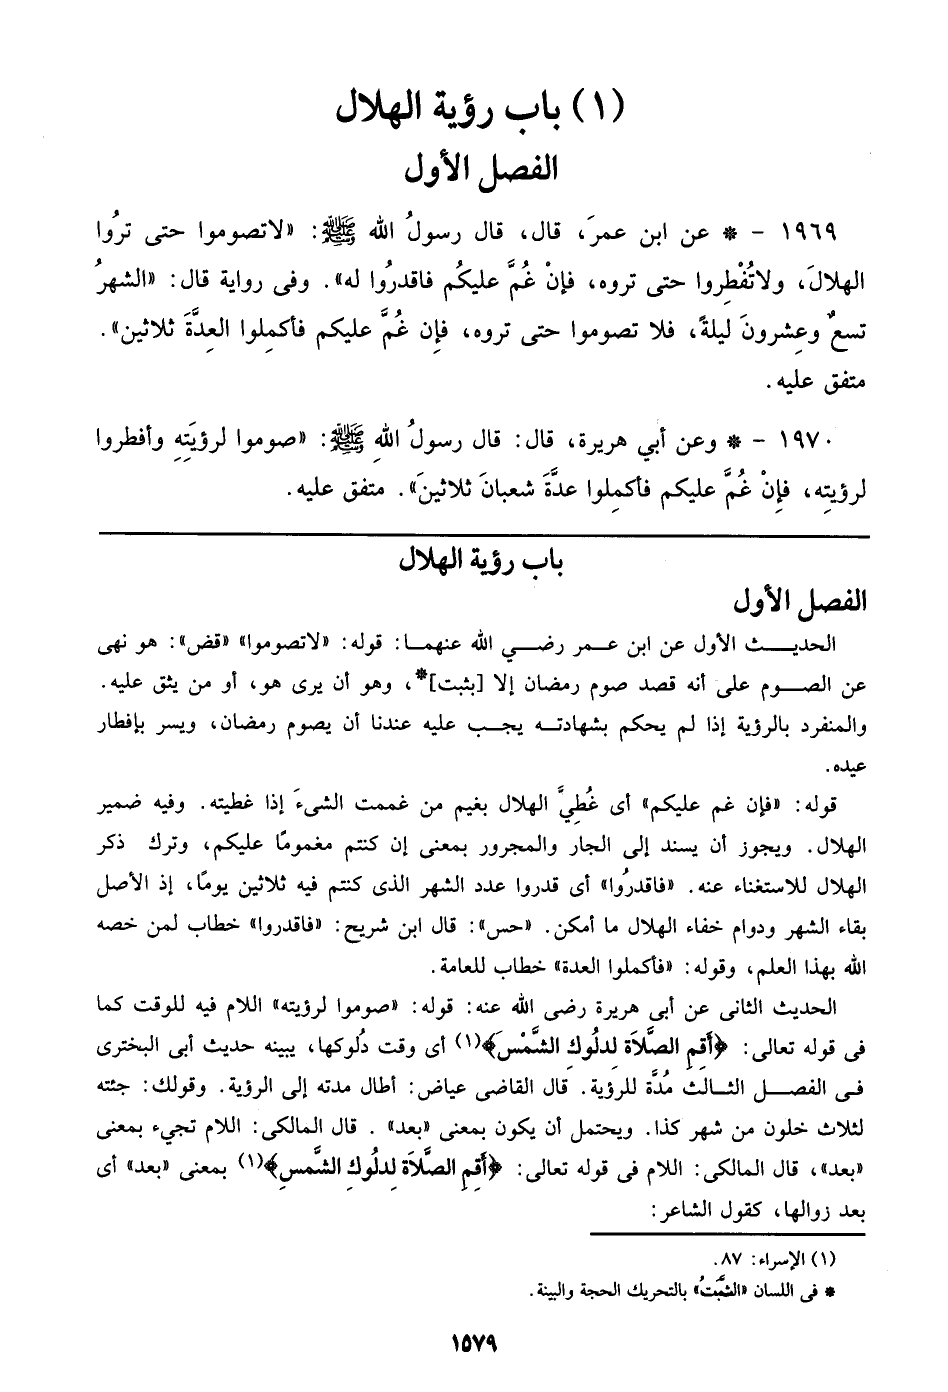 (١) باب رؤية الهلال
الفصل الأول
١٩٦٩ - * عن ابن عمرَ، قال، قال رسولُ الله ﷺ: «لاتصوموا حتى تروُا
الهلالَ، ولاتُفْطِروا حتى تروه، فإنْ غُمَّ عليكُم فاقدرُوا له». وفى رواية قال: «الشهرُ
تسعٌ وعِشرونَ ليلةً، فلا تصوموا حتى تروه، فإِن غُمَّ عليكم فأكمِلوا العِدَّةَ ثلاثين».
متفق عليه.
١٩٧٠ - * وعن أبي هريرة، قال: قال رسولُ اللهِ ﷺ: «صوموا لرؤيَتِهِ وأفطروا
لرؤيتِه، فإِنْ غُمَّ عليكم فأكمِلوا عدَّةَ شعبانَ ثلاثينَ». متفق عليه.
باب رؤية الهلال
الفصل الأول
الحديث الأول عن ابن عمر رضي الله عنهما: قوله: «لاتصوموا» «قض»: هو نهى
عن الصوم على أنه قصد صوم رمضان إلا [بثبت]*، وهو أن يرى هو، أو من يثق عليه.
والمنفرد بالرؤية إذا لم يحكم بشهادته يجب عليه عندنا أن يصوم رمضان، ويسر بإفطار
عيده.
قوله: «فإن غم عليكم» أى غُطِيَّ الهلال بغيم من غممت الشىءَ إذا غطيته. وفيه ضمير
الهلال. ويجوز أن يسند إلى الجار والمجرور بمعنى إن كنتم مغمومًا عليكم، وترك ذكر
الهلال للاستغناء عنه. «فاقدرُوا» أى قدروا عدد الشهر الذى كنتم فيه ثلاثين يومًا، إذ الأصل
بقاء الشهر ودوام خفاء الهلال ما أمكن. «حس»: قال ابن شريح: «فاقدروا» خطاب لمن خصه
الله بهذا العلم، وقوله: «فأكملوا العدة» خطاب للعامة.
الحديث الثانى عن أبى هريرة رضى الله عنه: قوله: «صوموا لرؤيته» اللام فيه للوقت كما
فى قوله تعالى: ﴿أَقِمِ الصَّلَاةَ لِدلُوكِ الشَّمْسِ﴾(١) أى وقت دلُوكها، يبينه حديث أبى البخترى
فى الفصل الثالث مُدَّة للرؤية. قال القاضى عياض: أطال مدته إلى الرؤية. وقولك: جئته
لثلاث خلون من شهر كذا. ويحتمل أن يكون بمعنى «بعد» . قال المالكى: اللام تجيء بمعنى
«بعد»، قال المالكى: اللام فى قوله تعالى: ﴿أَقِمِ الصَّلَاةَ لِدلُوكِ الشَّمسِ﴾(١) بمعنى «بعد» أى
بعد زوالها، كقول الشاعر:
(١) الإسراء: ٨٧.
* فى اللسان «الثَّبَتُ» بالتحريك الحجة والبينة.
١٥٧٩